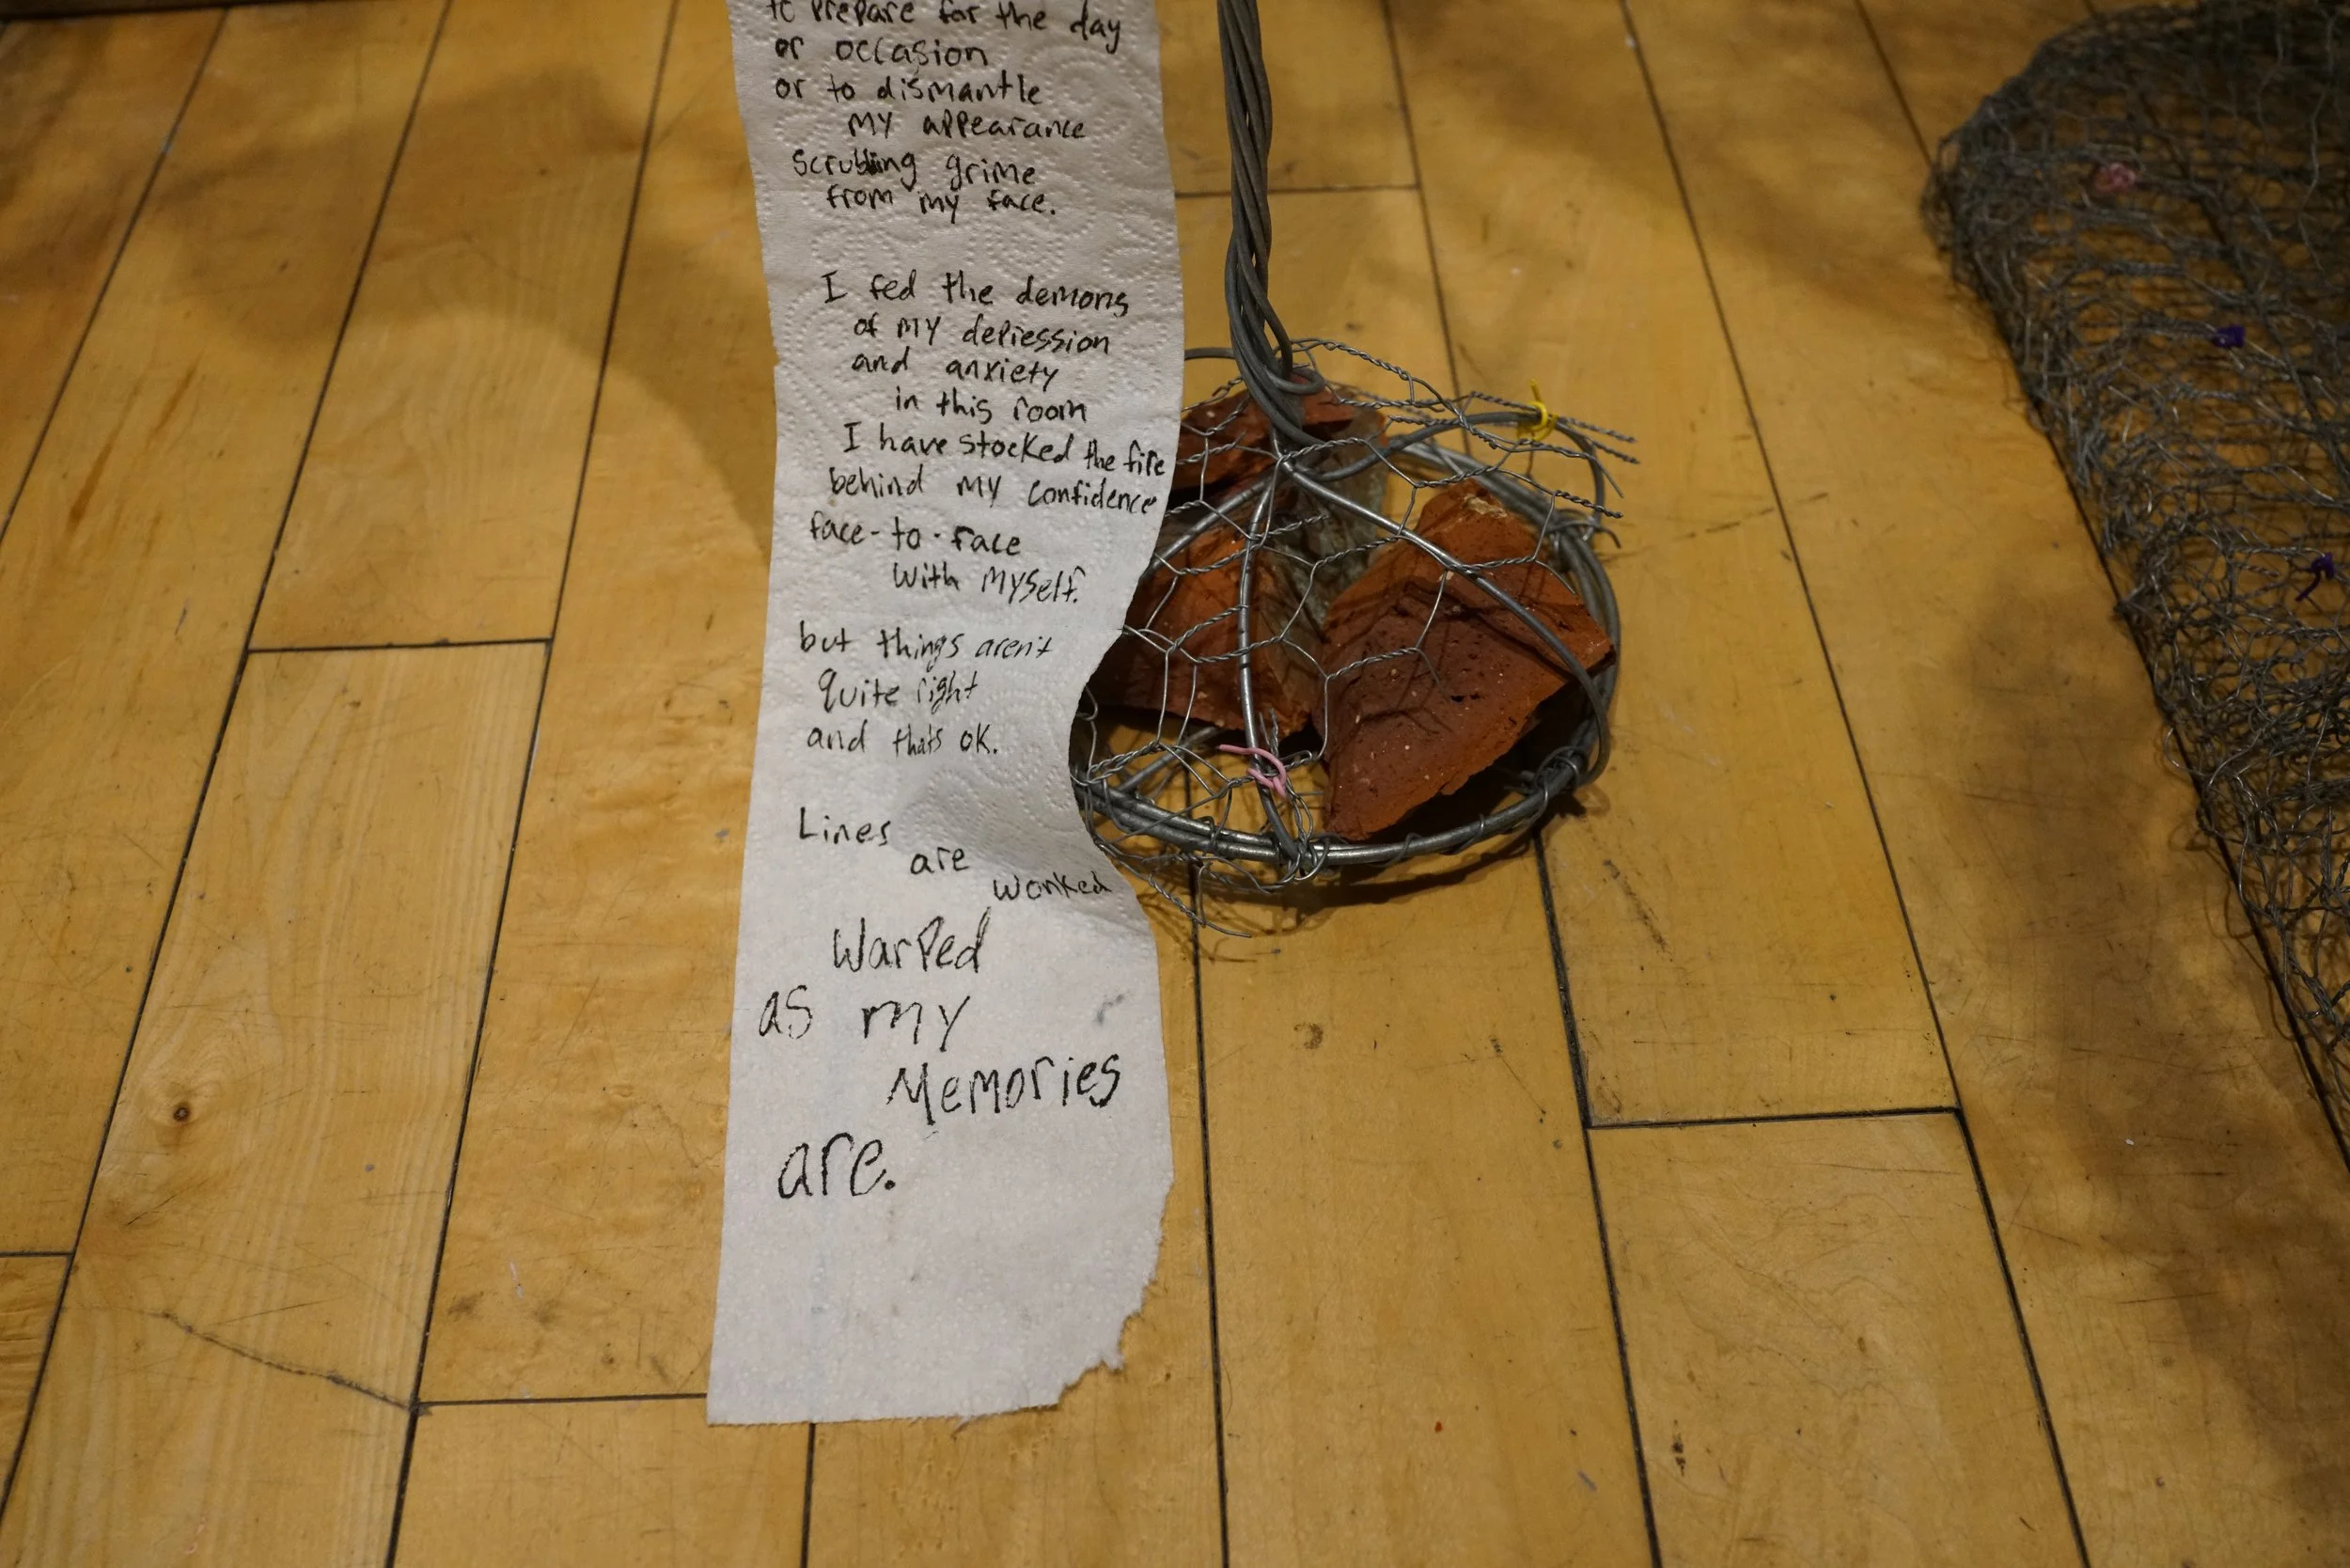 to prepare for the day
or occasion
or to dismantle
my appearance
scrubbing grime
from my face.
I fed the demons
of my depression
and anxiety
in this room
I have stocked the fire
behind my confidence
face-to-face
with myself.
but things aren't
quite right
and thats ok.
Lines
are
wonked
Warped
as my
Memories
are.